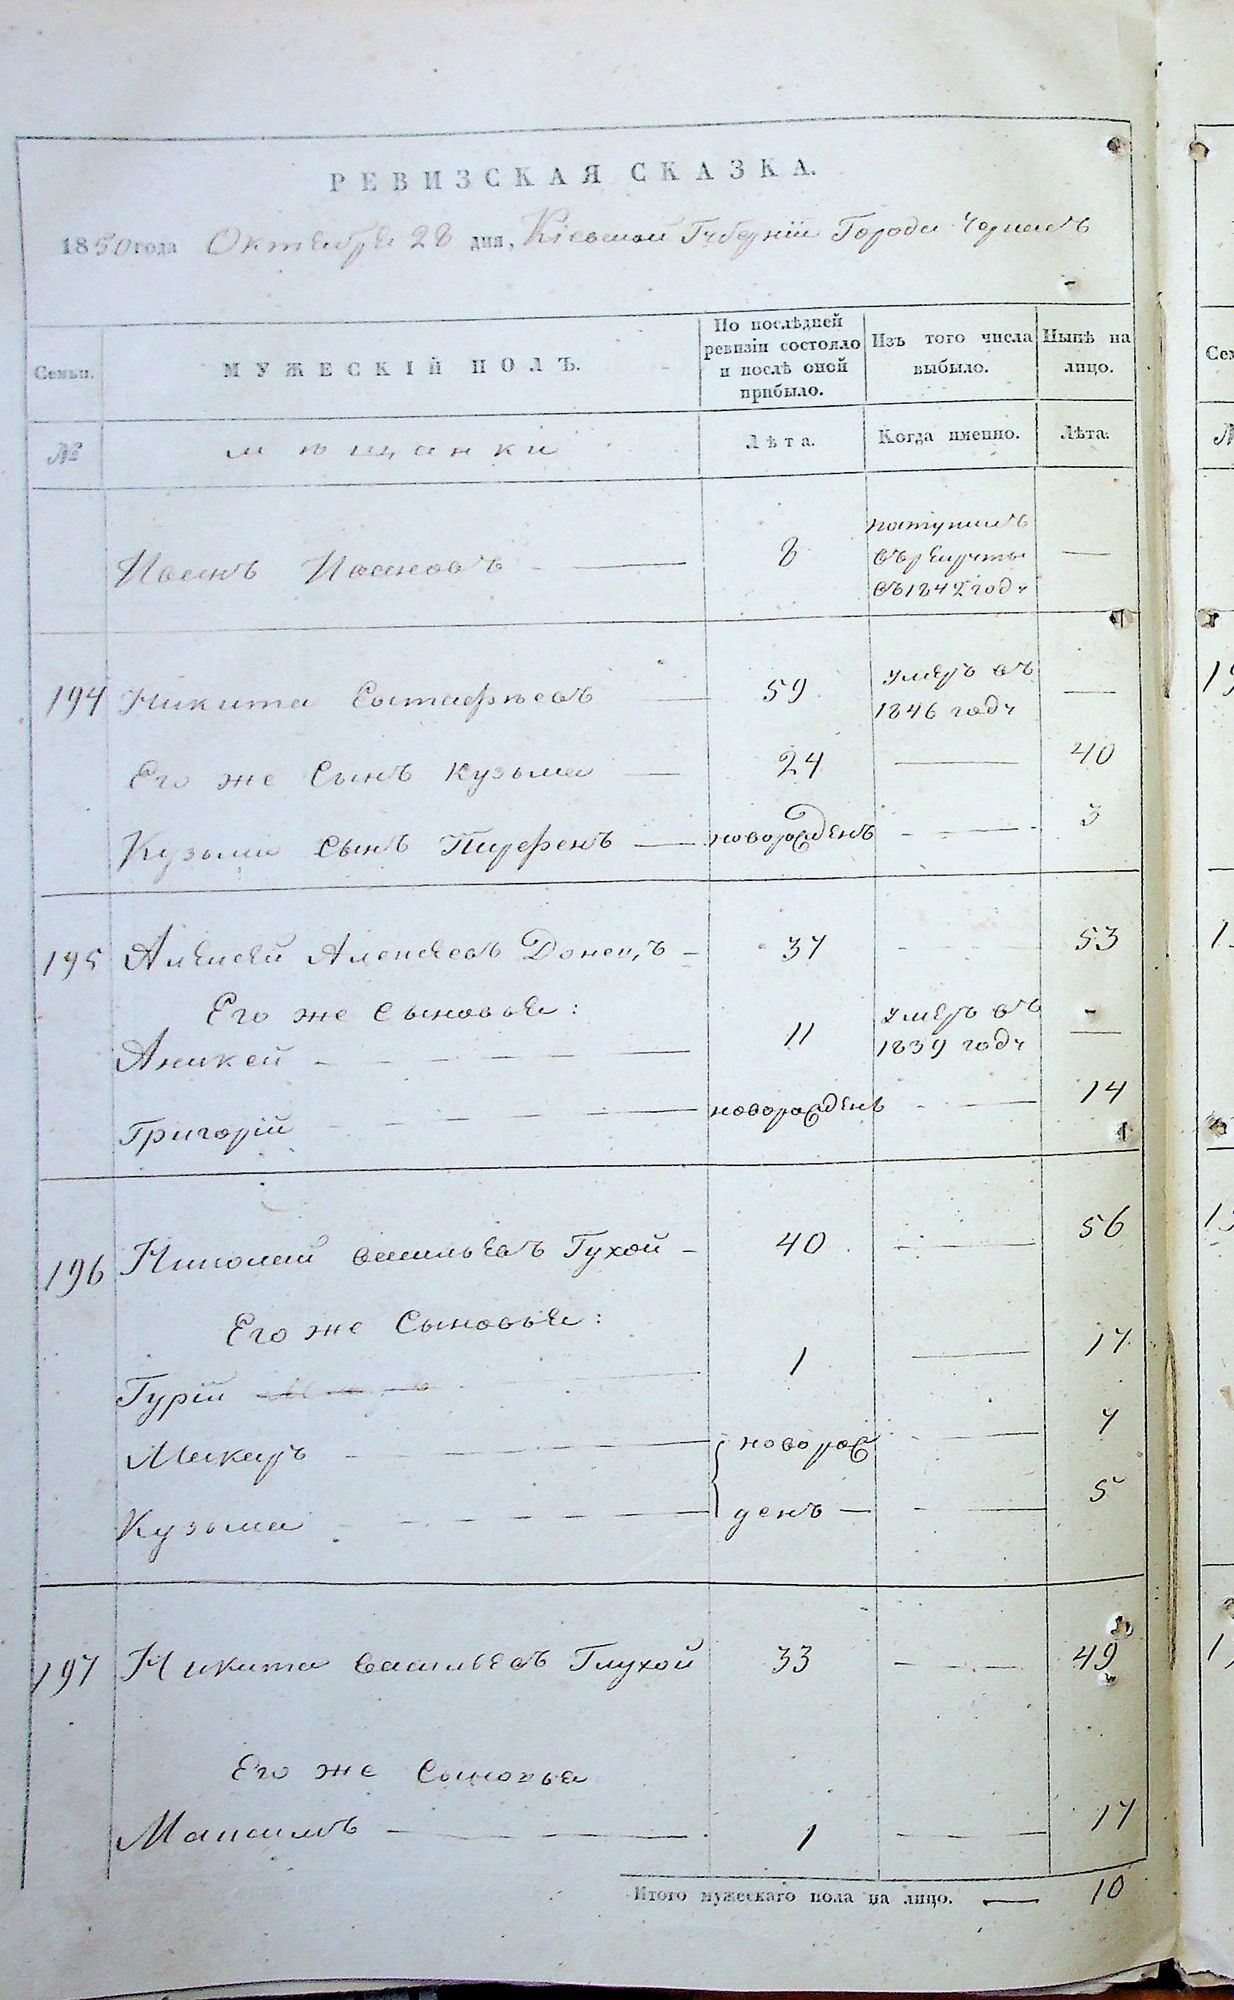 РЕВИЗСКАЯ СКАЗКА.
1850 года Октября 28 дня, Кіевской Губерніи Города Черкасъ
Семьи. МУЖЕСКІЙ ПОЛЪ. По послѣдней ревизіи состояло и послѣ оной прибыло. Изъ того числа выбыло. Нынѣ на лицо.
№ мѣщанки Лѣта. Когда именно. Лѣта.
Иванъ Ивановъ — 8 поступилъ въ рекруты въ 1842 году —
194 Никита Евстафѣевъ — 59 умеръ въ 1846 году —
Его же Сынъ Кузьма — 24 — 40
Кузьмы сынъ Парфенъ — новорожденъ — 3
195 Алексей Алексеевъ Донецъ — 37 — 53
Его же сыновья:
Аникей — 11 умеръ въ 1839 году —
Григорій — новорожденъ — 14
196 Николай васильевъ Глухой — 40 — 56
Его же Сыновья:
Гурій — 1 — 17
Макаръ — новорож — 7
Кузьма — денъ — — 5
197 Никита васильевъ Глухой 33 — 49
Его же Сыновья
Максимъ — 1 — 17
Итого мужескаго пола на лицо. — 10